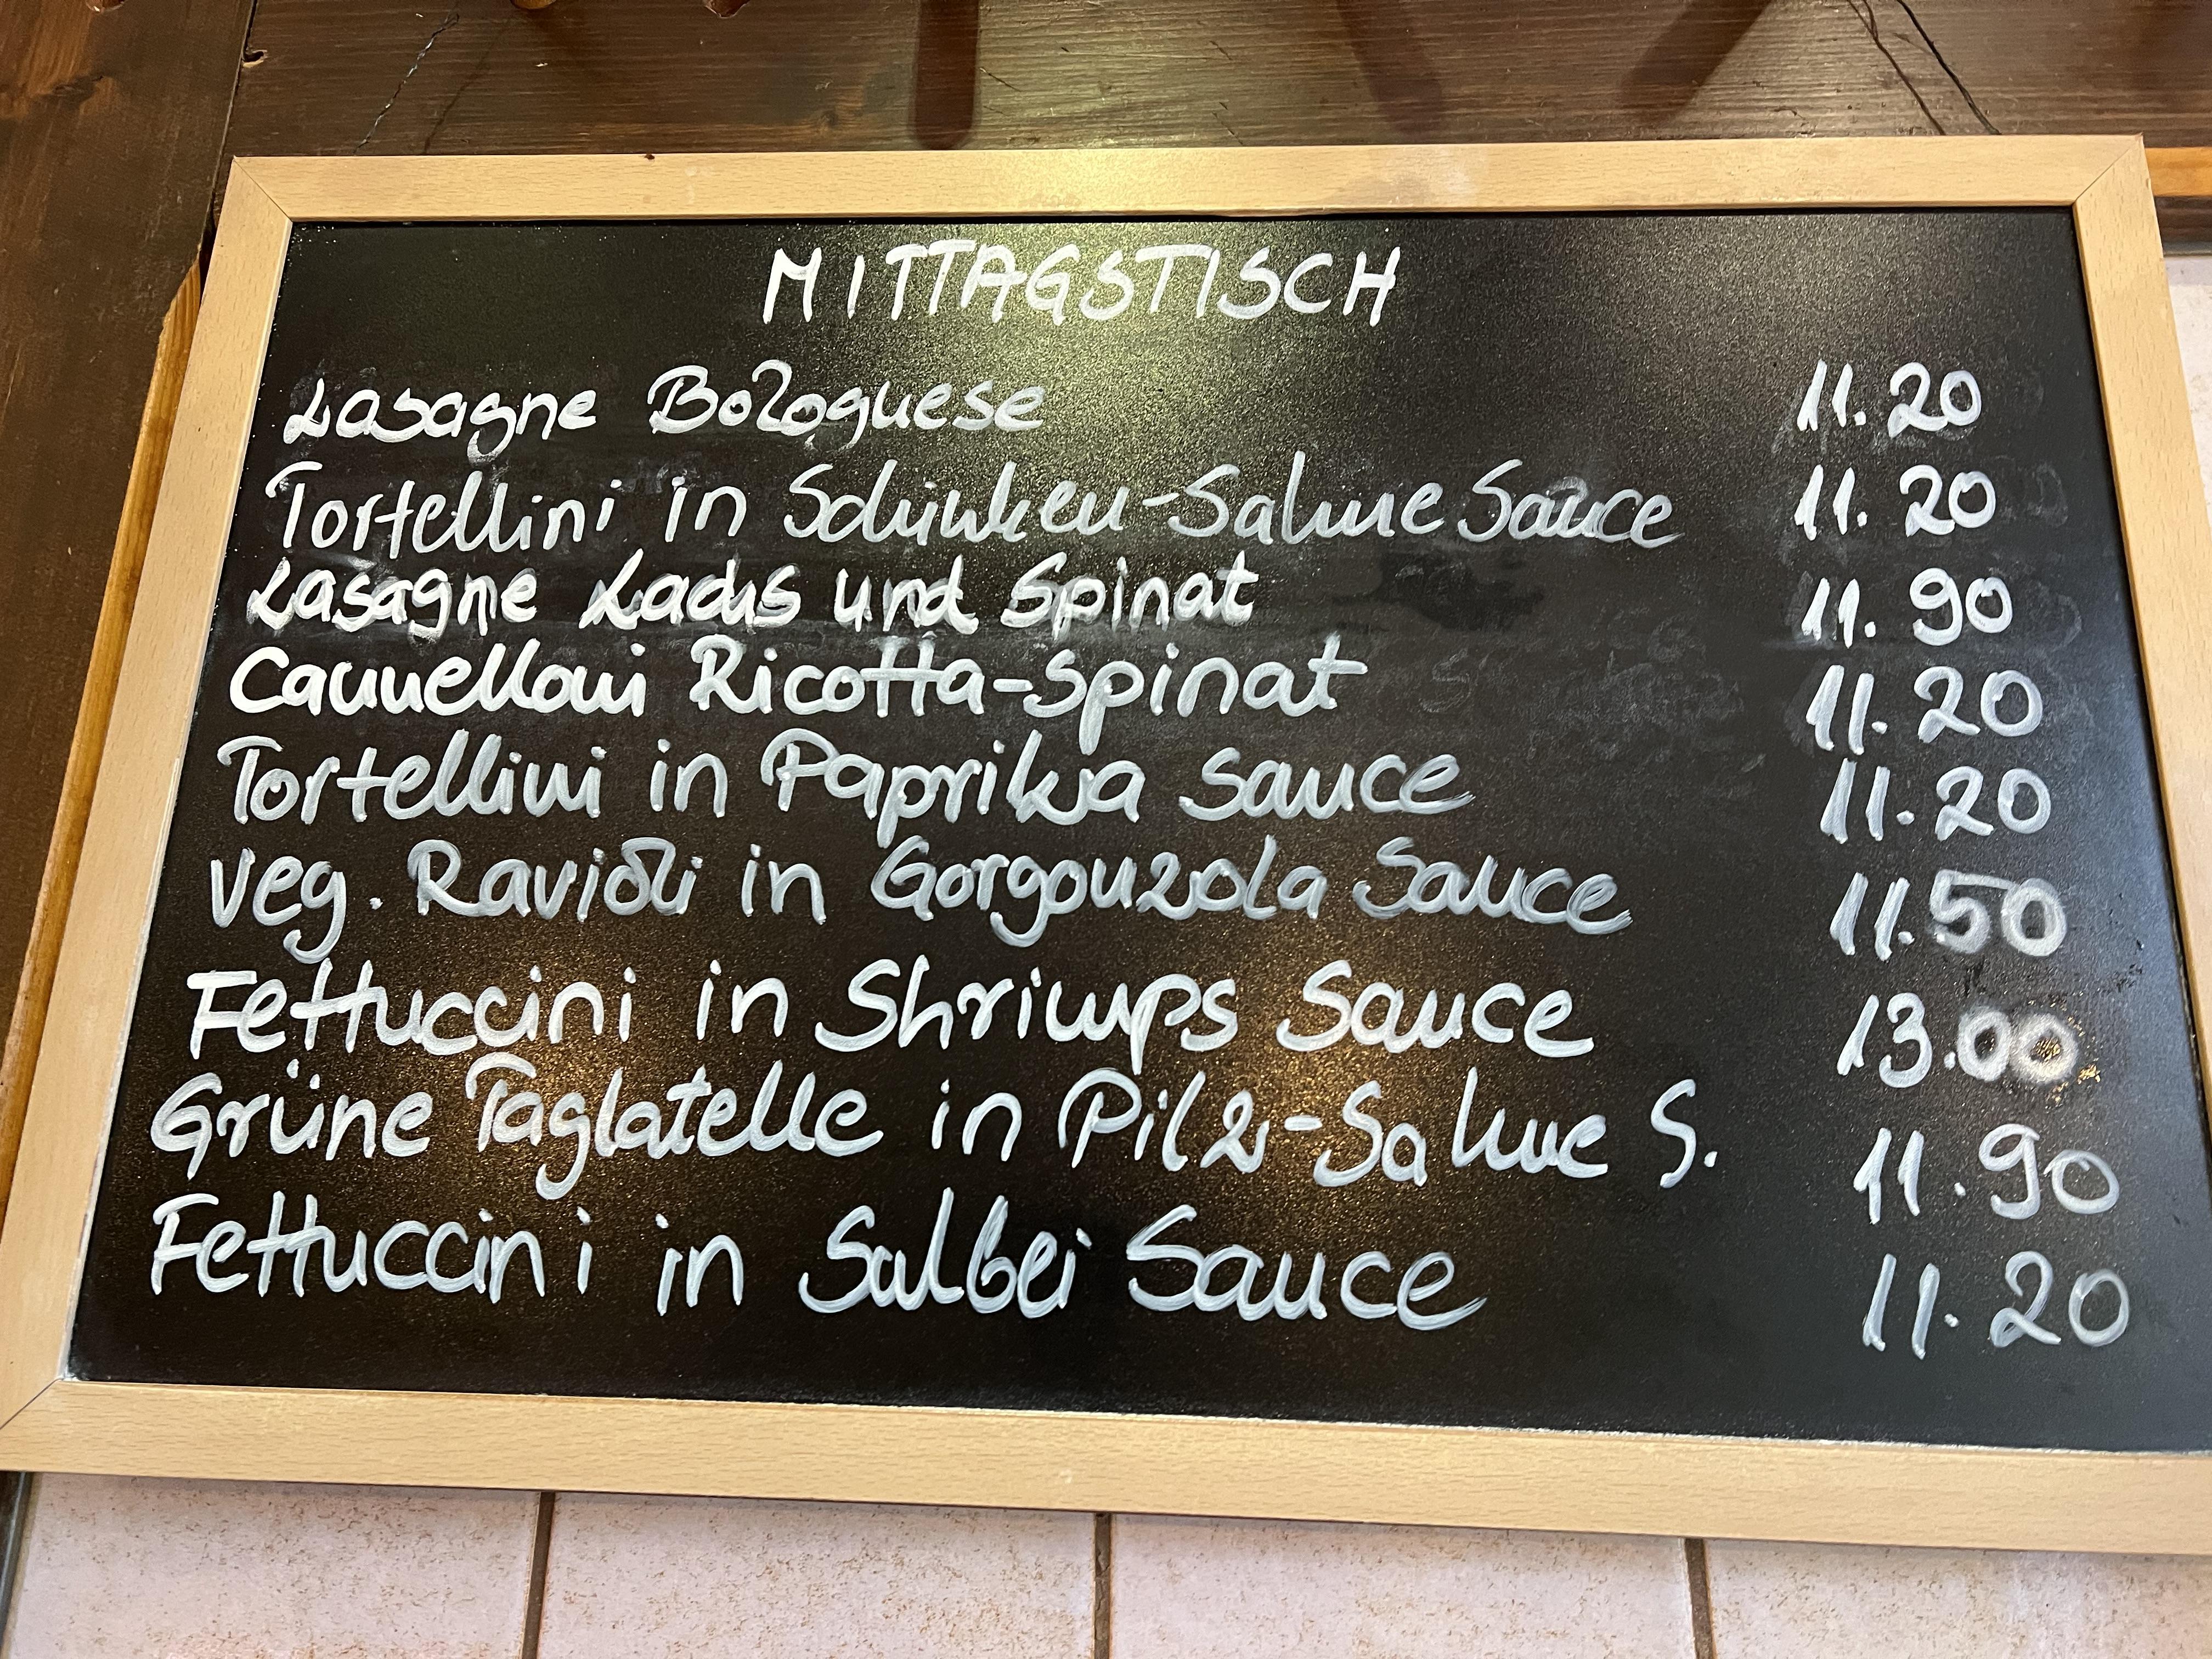 MITTAGSTISCH
Lasagne Bolognese 11.20
Tortellini in Schinken-Sahne Sauce 11.20
Lasagne Lachs und Spinat 11.90
Cannelloni Ricotta-Spinat 11.20
Tortellini in Paprika Sauce 11.20
Veg. Ravioli in Gorgonzola Sauce 11.50
Fettuccini in Shrimps Sauce 13.00
Grüne Taglatelle in Pilz-Sahne S. 11.90
Fettuccini in Salbei Sauce 11.20